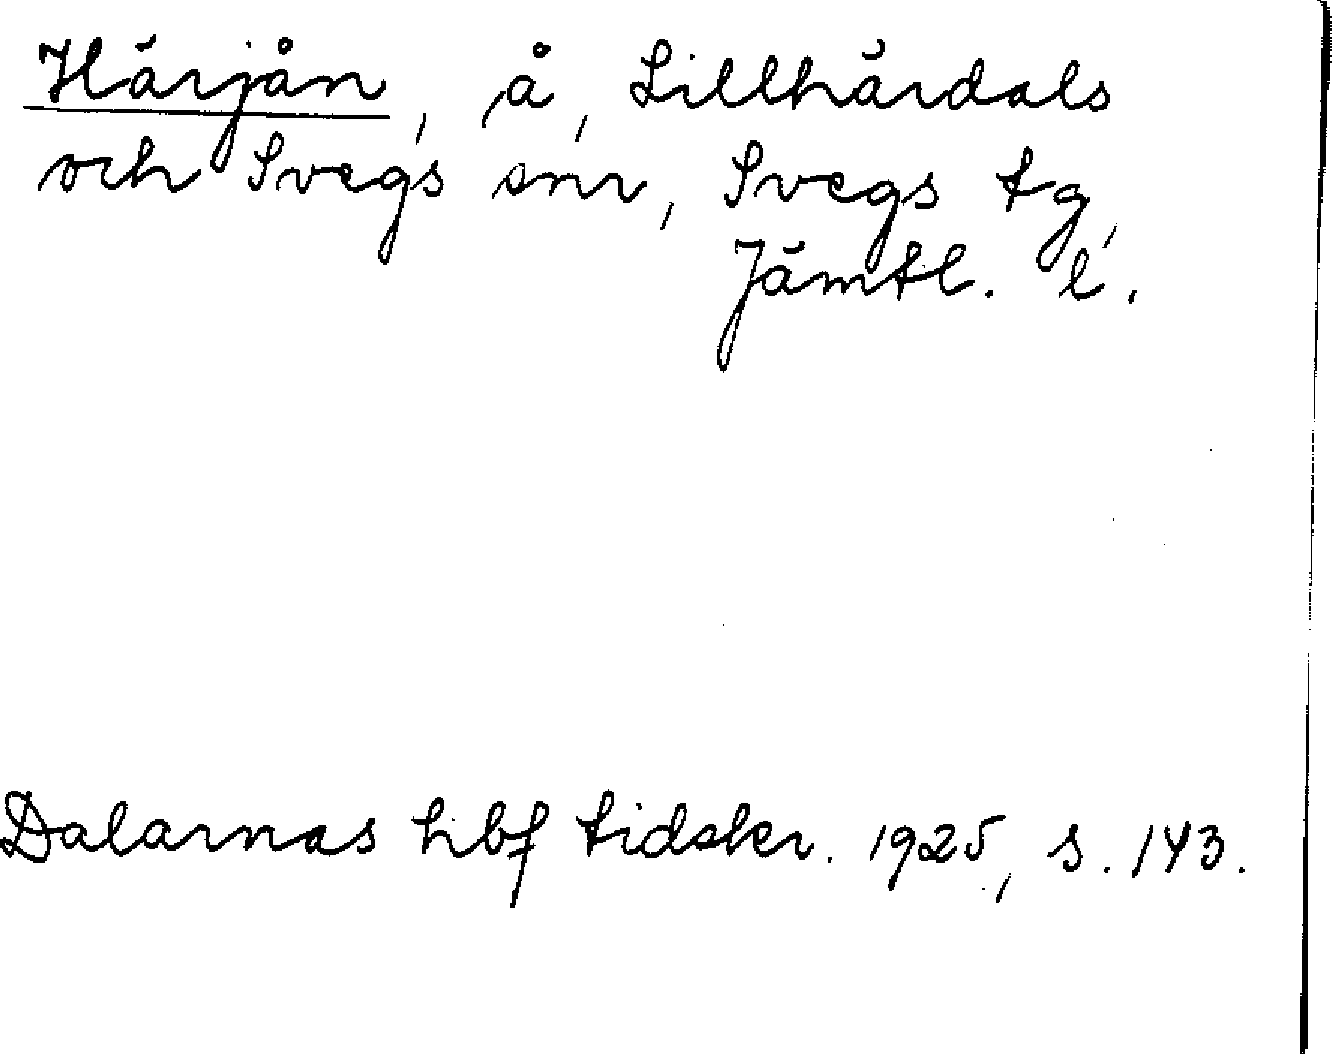 Härjån, å, Lillhärdals
och Svegs snr, Svegs tg,
Jämtl. l.
Dalarnas hbf tidskr. 1925, s. 143.